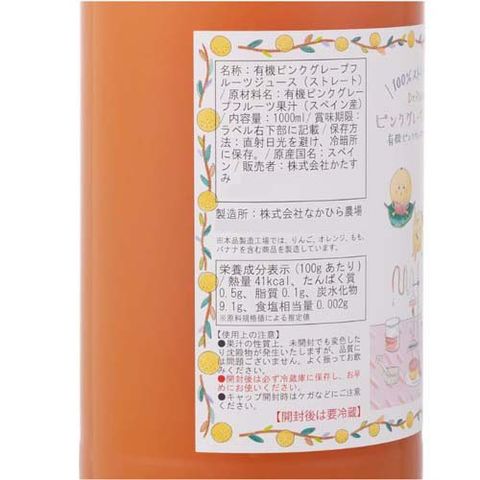 名称：有機ピンクグレープフ
ルーツジュース（ストレート）
/ 原材料名：有機ピンクグレ
ープフルーツ果汁（スペイン産）
/ 内容量：1000ml/ 賞味期限：
ラベル右下部に記載 / 保存方
法：直射日光を避け、冷暗所
に保存。/ 原産国名：スペイ
ン / 販売者：株式会社かたす
み
製造所：株式会社なかひら農場
※本品製造工場では、りんご、オレンジ、もも、
バナナを含む商品を製造しています。
栄養成分表示（100gあたり）
/ 熱量 41kcal、たんぱく質
0.5g、脂質 0.1g、炭水化物
9.1g、食塩相当量 0.002g
※原料規格値による推定値
【使用上の注意】
●果汁の性質上、未開封でも変色した
り沈殿物が発生いたしますが、品質に
は問題ございません。よく振ってお飲
みください。
●開封後は必ず冷蔵庫に保存し、お早
めにお使いください。
●キャップ開封時はケガなどにご注意
ください。
【開封後は要冷蔵】
100%
ピンクグレープ
有機